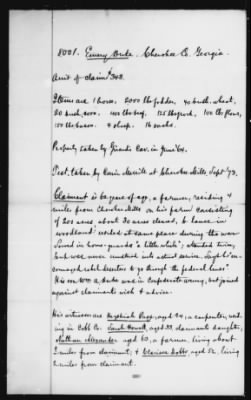 8001. Emery Butts. Cherokee Co. Georgia.
Amt of claim $ 348.
Items are 1 horse, 2000 lbs fodder, 40 bush. wheat,
20 bush. corn. 400 lbs beef, 125 lbs pork, 100 lbs flour,
150 lbs bacon. 4 sheep. 16 sacks.
Property taken by Cav. in June '64.
Pet. taken by at Cherokee Mills, Sept '73.
Claimant is 62 years of age, a farmer, residing 4
miles from Cherokee Mills on his farm consisting
of 201 acres, about 30 acres cleared, & balance in
woodland; resided at same place during the war.
Served in home-guards "a little while"; attended drills,
but was never mustered into actual service. Says he "en-
couraged rebel deserters to go through the federal lines"
His son was in Confederate army, but joined
against claimants wish & advice.
His witnesses are Hezekiah aged 24, a carpenter, resid-
ing in Cobb Co. Sarah aged 33, claimants daughter,
Nathan Alexander aged 60, a farmer living about
2 miles from claimant; & Clarissa aged 52, living
miles from claimant.